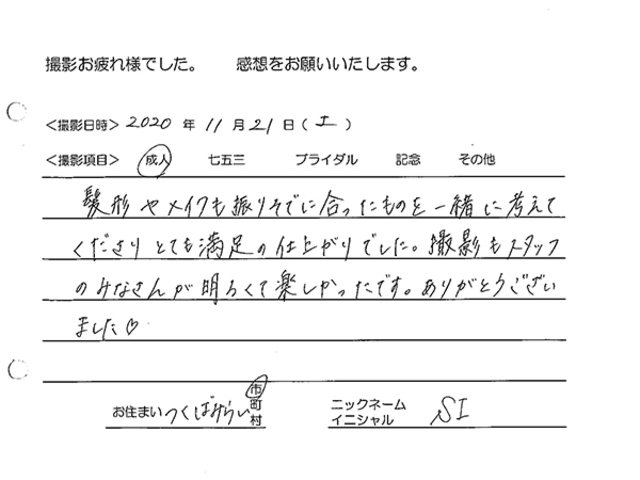 撮影お疲れ様でした。 感想をお願いいたします。
＜撮影日時＞ 2020 年 11 月 21 日（ 土 ）
＜撮影項目＞ 成人 七五三 ブライダル 記念 その他
髪形やメイクも振りそでに合ったものを一緒に考えて
くださりとても満足の仕上がりでした。撮影もスタッフ
のみなさんが明るくて楽しかったです。ありがとうござい
ました♡
お住まい つくばみらい 市 町 村 ニックネーム イニシャル SI